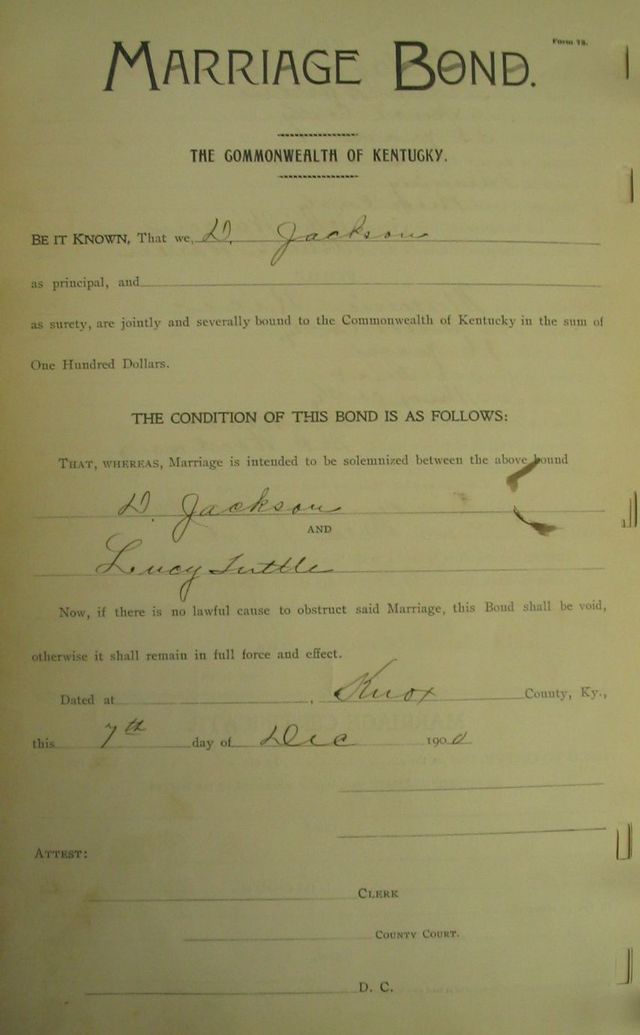 Form 78.
MARRIAGE BOND.
THE COMMONWEALTH OF KENTUCKY.
BE IT KNOWN, That we, D. Jackson
as principal, and
as surety, are jointly and severally bound to the Commonwealth of Kentucky in the sum of
One Hundred Dollars.
THE CONDITION OF THIS BOND IS AS FOLLOWS:
THAT, WHEREAS, Marriage is intended to be solemnized between the above bound
D. Jackson
AND
Lucy Tuttle
Now, if there is no lawful cause to obstruct said Marriage, this Bond shall be void,
otherwise it shall remain in full force and effect.
Dated at , Knox County, Ky.,
this 7th day of Dec 1900
ATTEST:
CLERK
COUNTY COURT.
D. C.